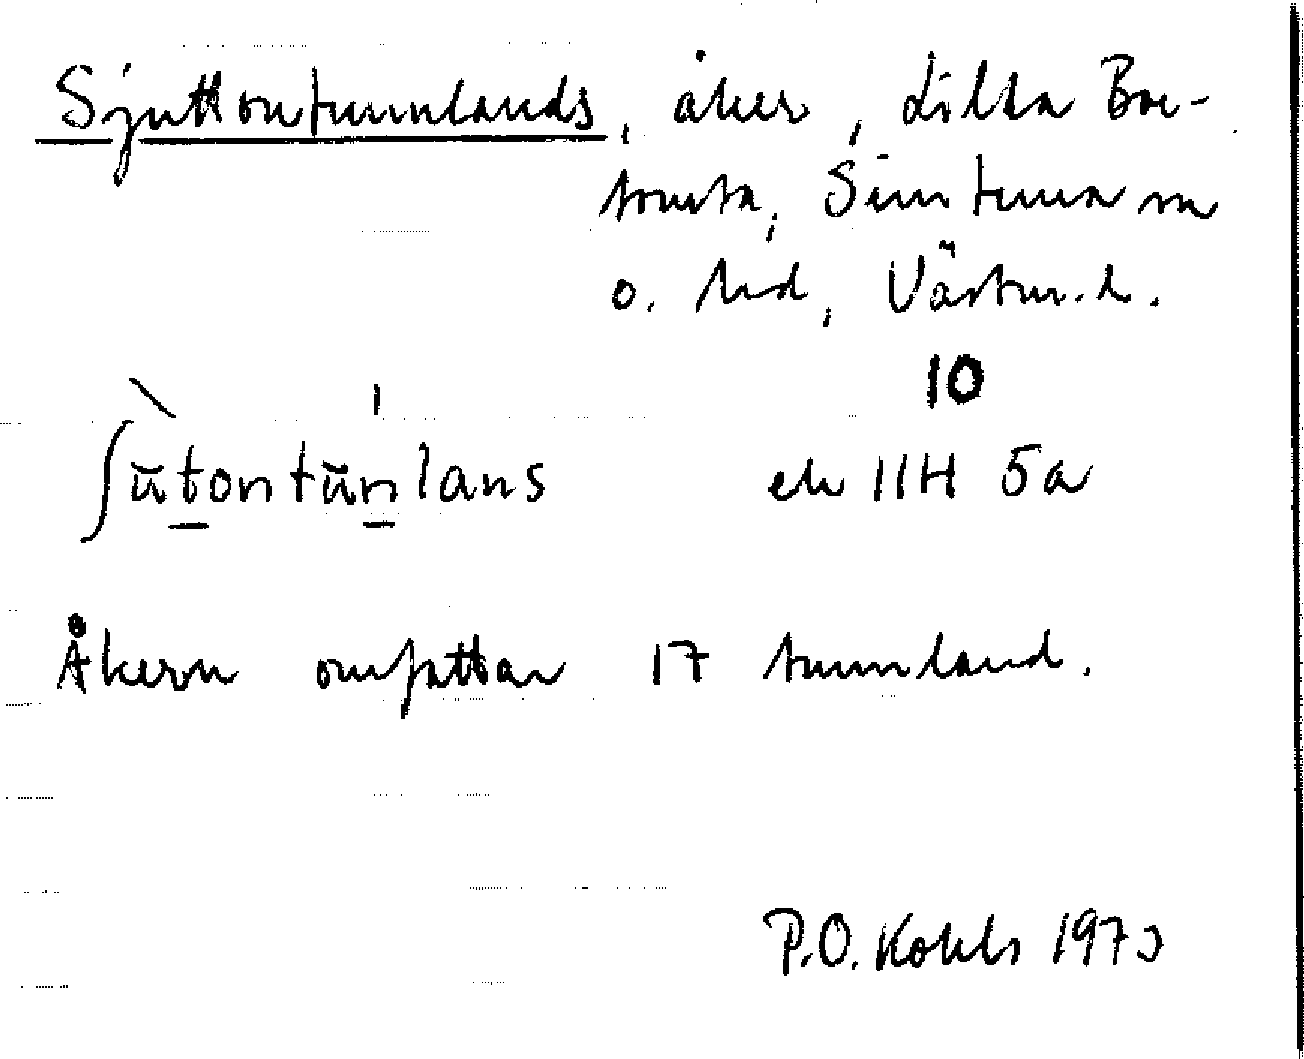 Sjuttontunnlands, åker, Lilla Bor-
tomta, Simtuna sn
o. hd, Västm. l.
10
ʃu̅t̲ontu̅n̲lans ek 11H 5a
Åkern omfattar 17 tunnland.
P.O. Kohls 1973